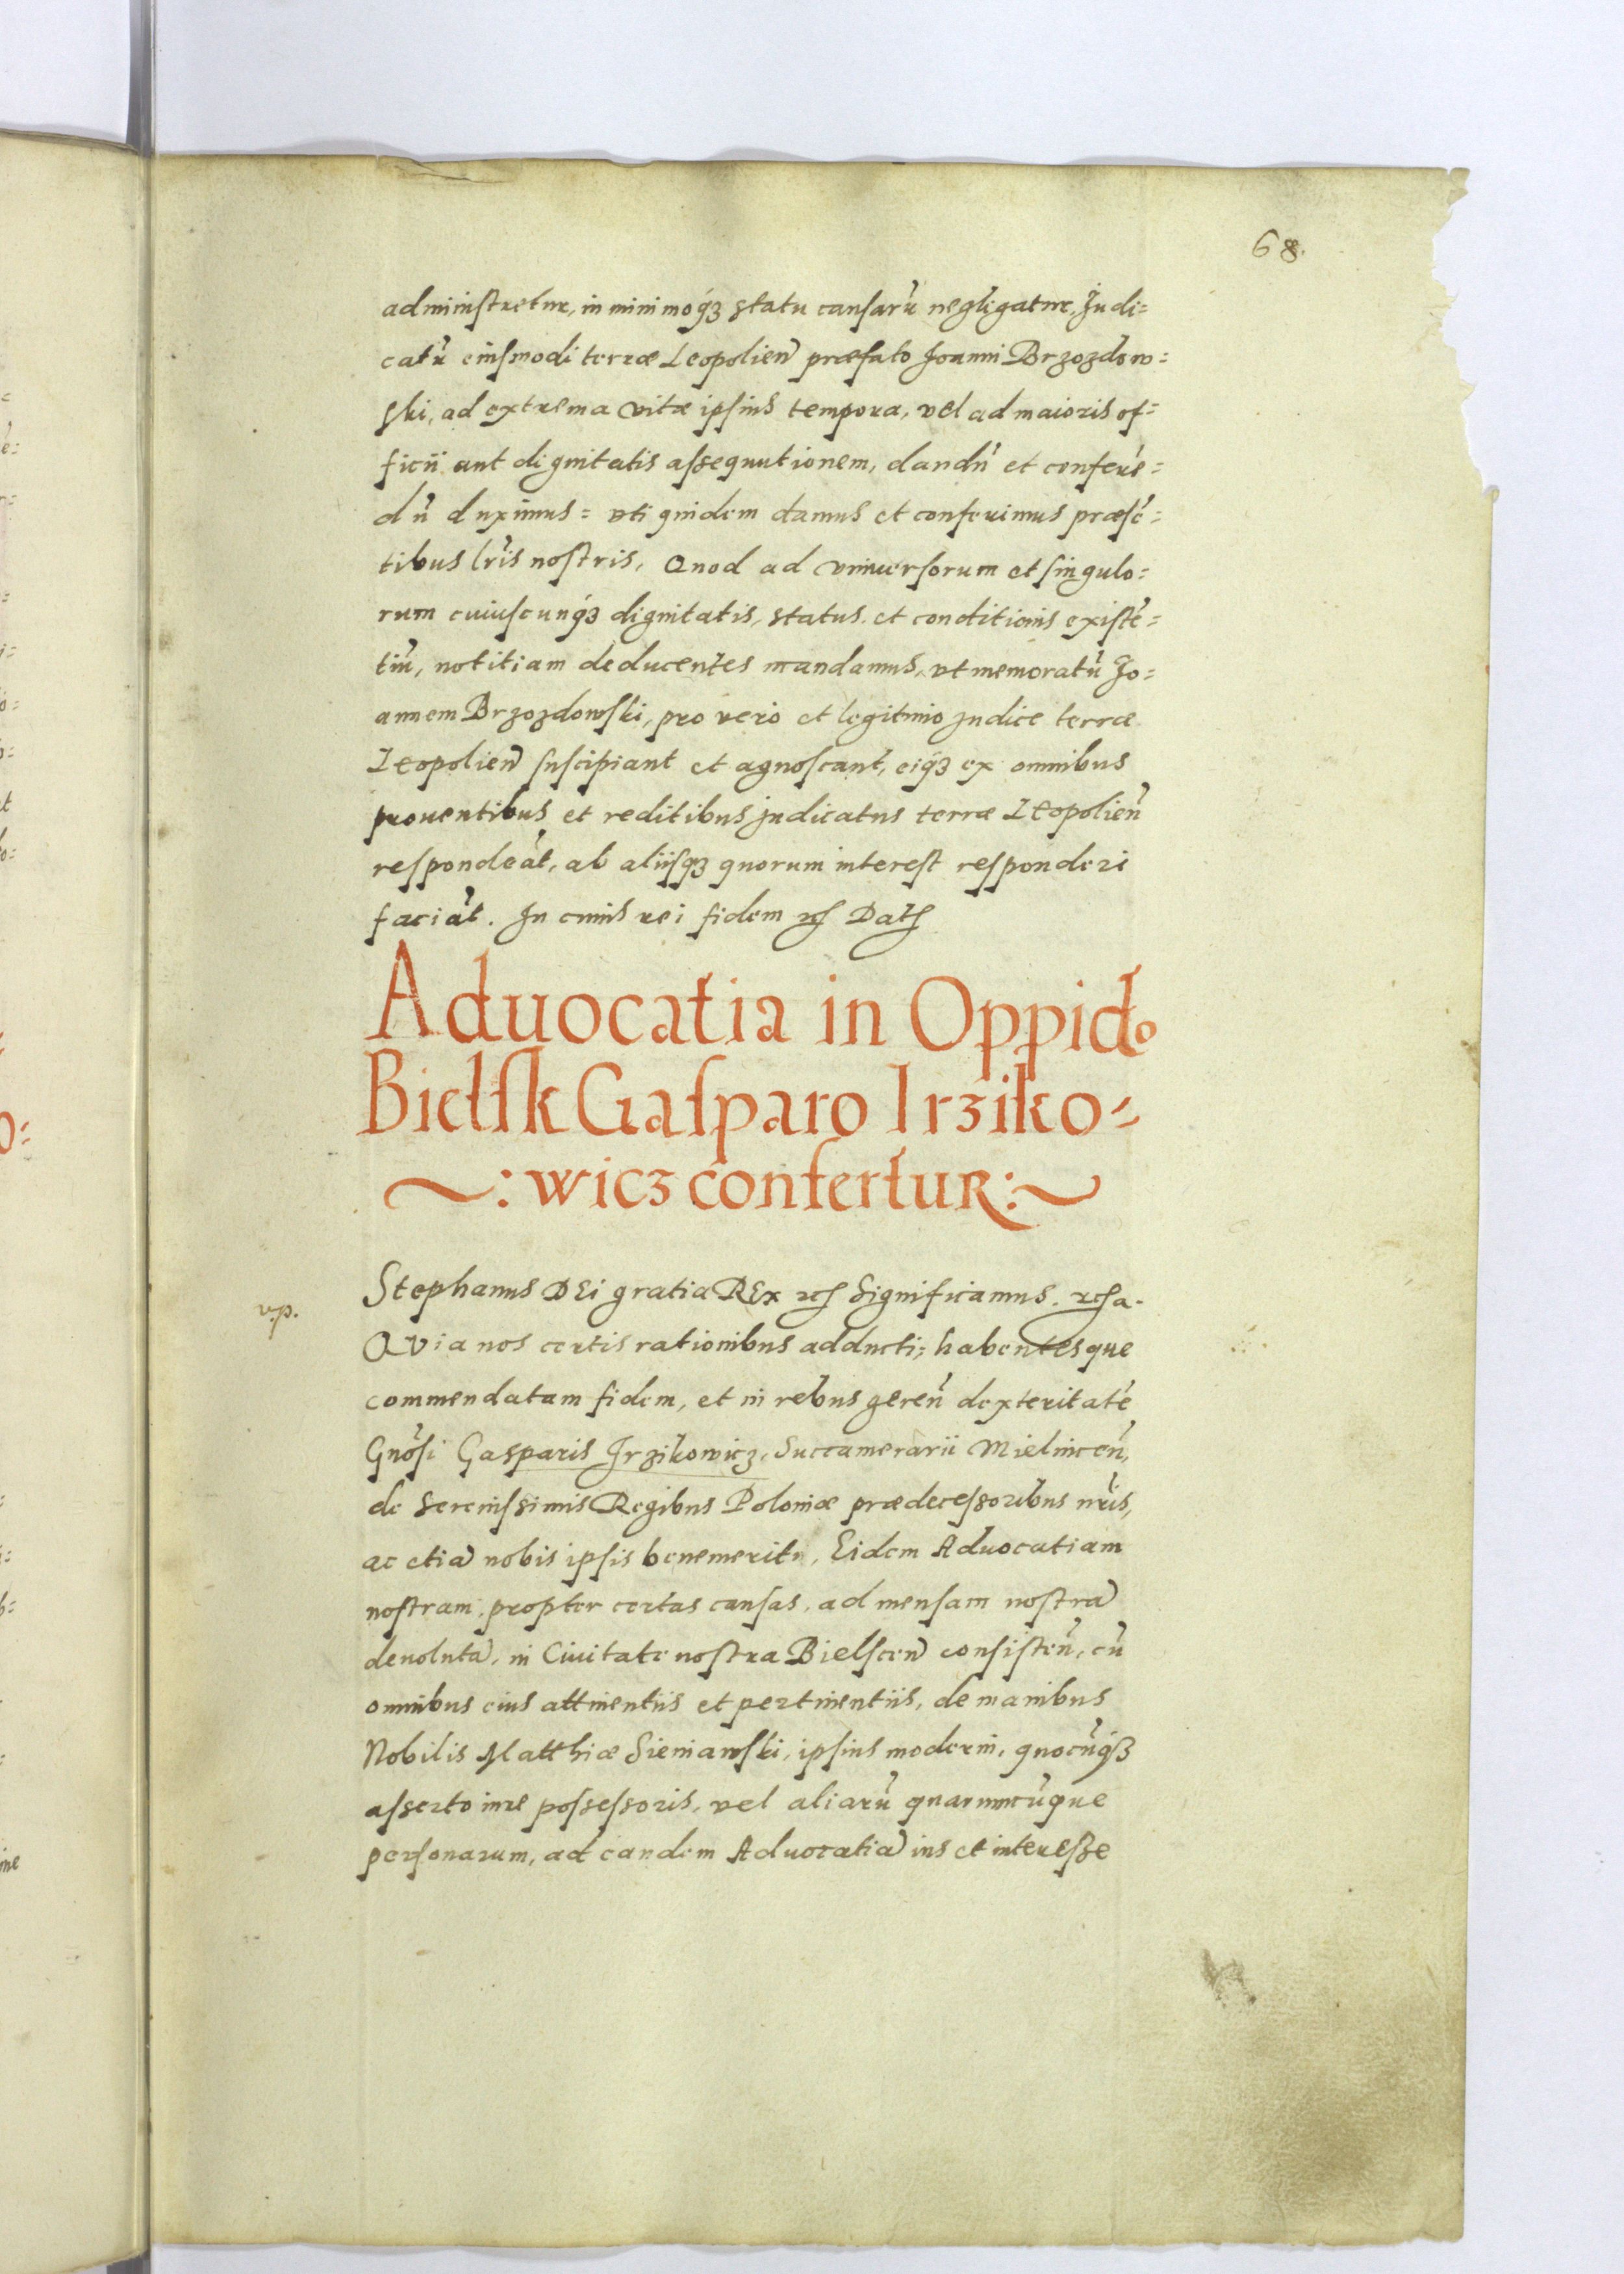 68.
administretur, in minimoq́ꝫ statu causarũ negligatur. Judi=
catũ eiusmodi terræ Leopolien̄ præfato Joanni Brzozdow=
ski, ad extrema vitæ ipsius tempora, vel ad maioris of=
ficii aut dignitatis assequutionem, dandũ et conferẽ=
dũ duximus = vti quidem damus et conferimus præsẽ=
tibus lr̃is nostris, Quod ad vniuersorum et singulo=
rum cuiuscunq́ꝫ dignitatis, status et conditionis existẽ=
tiũ, notitiam deducentes mandamus, vt memoratũ Jo=
annem Brzozdowski, pro vero et legitimo judice terræ
Leopolien̄ suscipiant et agnoscant, eiq́ꝫ ex omnibus
prouentibus et reditibus judicatus terræ Leopolien̄
respondeãt, ab aliisqꝫ quorum interest responderi
faciãt. In cuius rei fidem ꝛc̃ Datß
Aduocatia in Oppido
Bielsk Gasparo Irziko=
~: wicz confertur :~
v.p.
Stephanus DEi gratia REx ꝛc̃ Significamus. ꝛc̃a.
QVia nos certis rationibus adducti; habentesque
commendatam fidem, et in rebus geren̄ dexteritatẽ
Gnõsi Gasparis Jrzikowicz, Succamerarii Mielnicen̄,
de Serenissimis Regibus Poloniæ prædecessoribus nr̃is,
ac etiã nobis ipsis benemeriti, Eidem Aduocatiam
nostram, propter certas causas, ad mensam nostrã
deuolutã, in Ciuitate nostra Bielscen̄ consisten̄, cũ
omnibus eius attinentiis et pertinentiis, de manibus
Nobilis Matthiæ Sieniawski, ipsius moderni, quocũq́ꝫ
asserto iure possessoris, vel aliarũ quarumcũque
personarum, ad eandem Aduocatiã ius et interesse